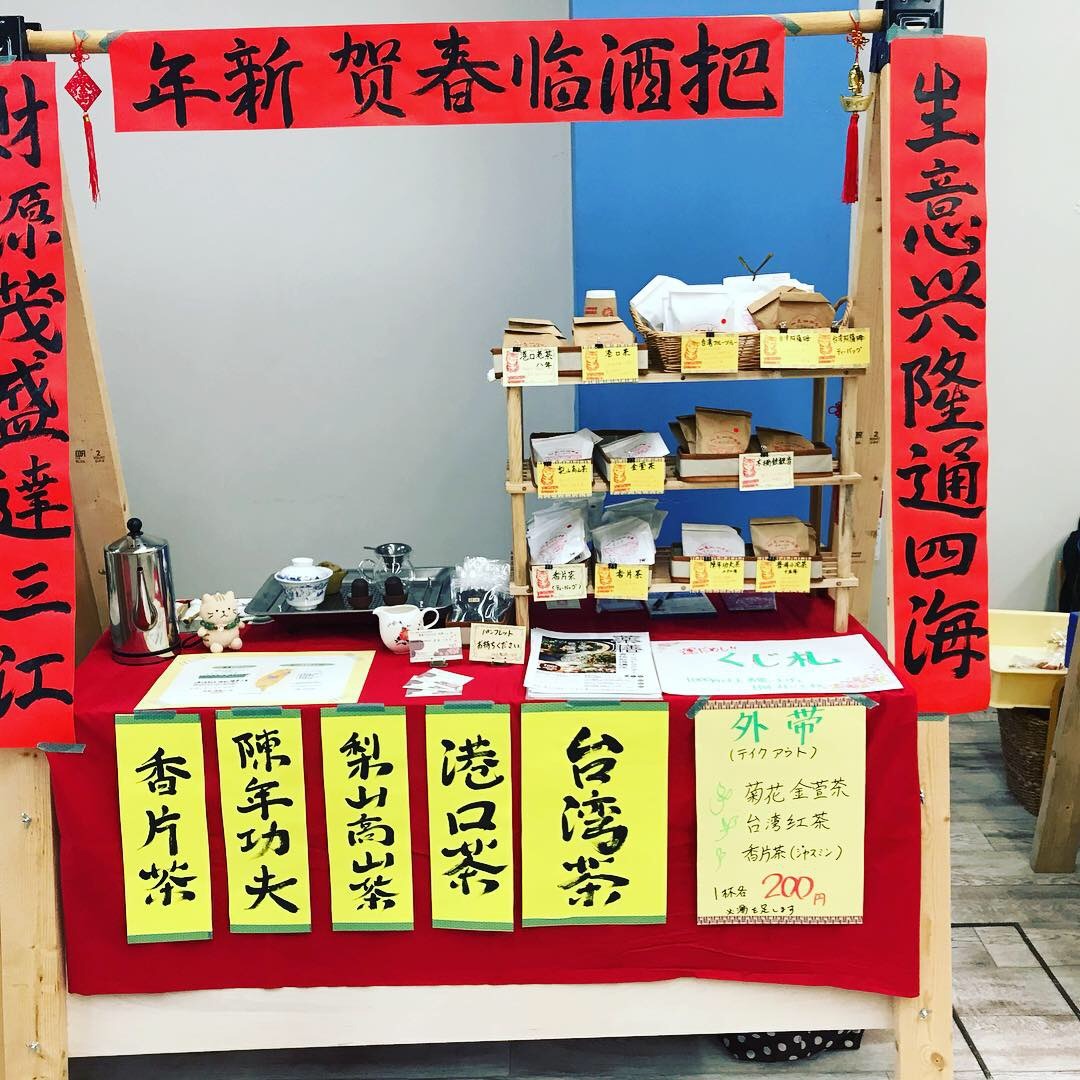 年新 贺春临酒把
生意兴隆通四海
財源茂盛達三江
港口茶
八年
港口茶
台湾フルーツ
ティーバッグ
梨山高山茶
金萱茶
香片茶
ティーバッグ
香片茶
パンフレット
お持ちください
薬膳
運だめし!!
くじ札
香片茶
陳年功夫
梨山高山茶
港口茶
台湾茶
外帯
(テイクアウト)
菊花金萱茶
台湾紅茶
香片茶(ジャスミン)
1杯各 200円